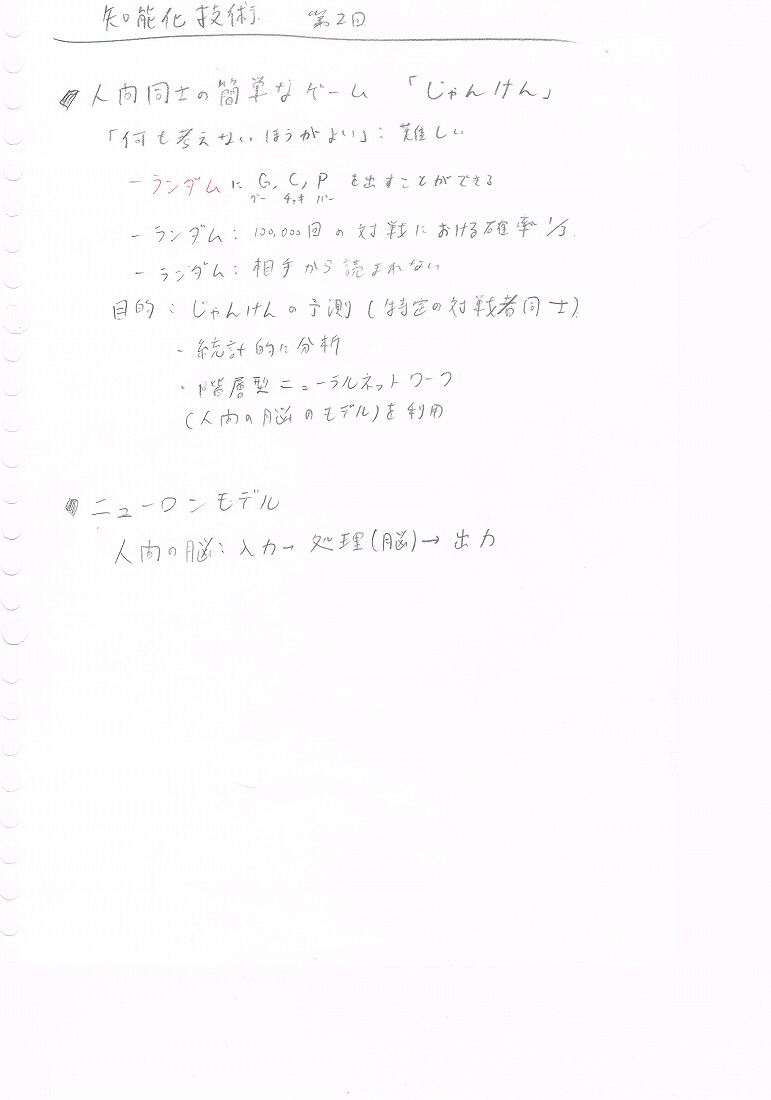 知能化技術 第2回
人間同士の簡単なゲーム 「じゃんけん」
「何も考えないほうがよい」: 難しい
－ランダムに G, C, P を出すことができる
グー チョキ パー
－ランダム: 100,000回の対戦における確率 1/3.
－ランダム: 相手から読まれない
目的: じゃんけんの予測 (特定の対戦者同士)
・統計的に分析
・階層型ニューラルネットワーク
(人間の脳のモデル)を利用
ニューロンモデル
人間の脳: 入力→処理(脳)→出力